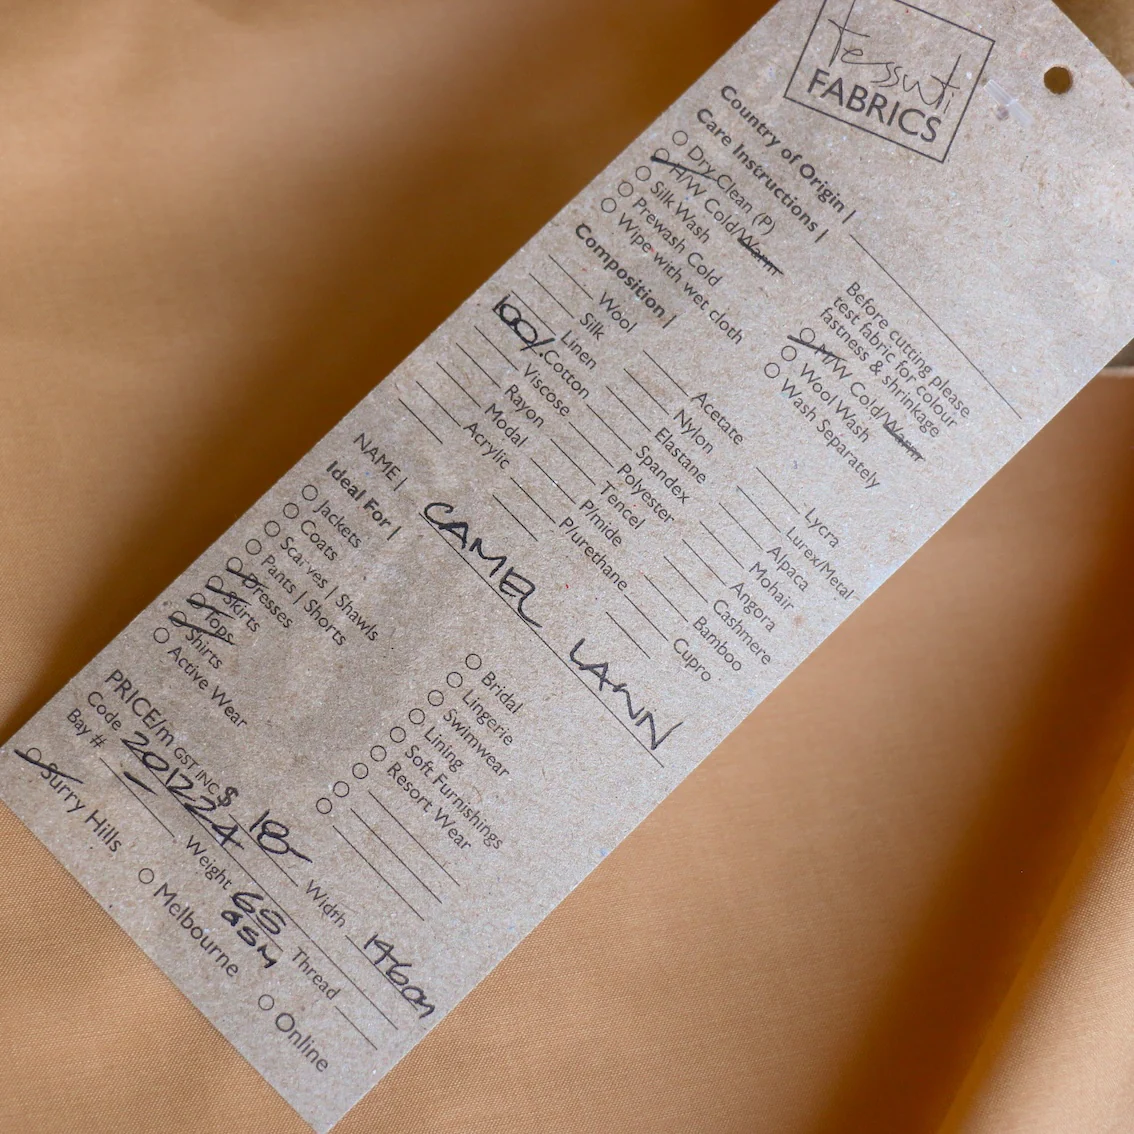 Tessuti
FABRICS
Country of Origin |
Care Instructions |
Dry Clean (P)
H/W Cold/Warm
Silk Wash
Prewash Cold
Wipe with wet cloth
Before cutting please
test fabric for colour
fastness & shrinkage
M/W Cold/Warm
Wool Wash
Wash Separately
Composition |
Wool
Silk
Linen
100% Cotton
Viscose
Rayon
Modal
Acrylic
Acetate
Nylon
Elastane
Spandex
Polyester
Tencel
P/mide
P/urethane
Lycra
Lurex/Metal
Alpaca
Mohair
Angora
Cashmere
Bamboo
Cupro
NAME | CAMEL LAWN
Ideal For |
Jackets
Coats
Scarves | Shawls
Pants | Shorts
Dresses
Skirts
Tops
Shirts
Active Wear
Bridal
Lingerie
Swimwear
Lining
Soft Furnishings
Resort Wear
PRICE/m GST INC $ 18- Width 146cm
Code 201224 Weight 65 gsm Thread
Bay #
Surry Hills
Melbourne
Online